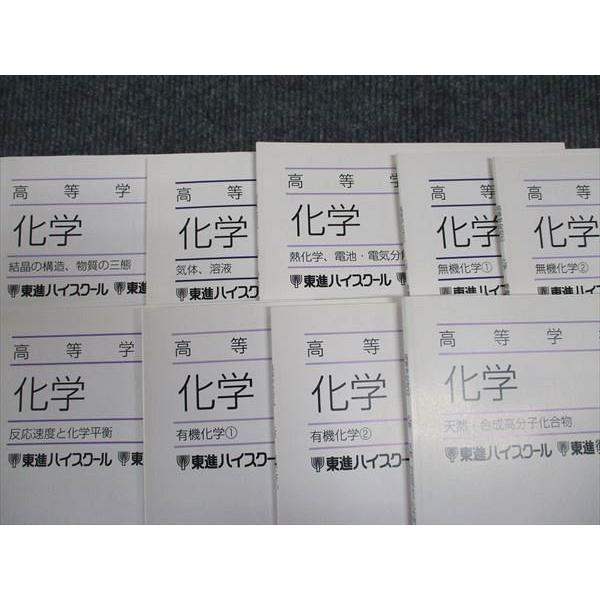 高等学
化学
結晶の構造、物質の三態
東進ハイスクール 東進
高等
化学
気体、溶液
東進ハイスクー
高等学
化学
熱化学、電池・電気分
東進ハイスクール
高等
化学
無機化学①
東進ハイスク
高等
化学
無機化学②
東進ハイ
高等学
化学
反応速度と化学平衡
東進ハイスクール 東
高等
化学
有機化学①
東進ハイスクー
高等
化学
有機化学②
東進ハイスクー
高等学
化学
天然・合成高分子化合物
東進ハイスクール 東進